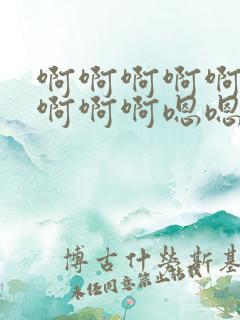 啊啊啊啊啊
啊啊啊嗯嗯
博古什勞斯基
未經同意禁止轉載